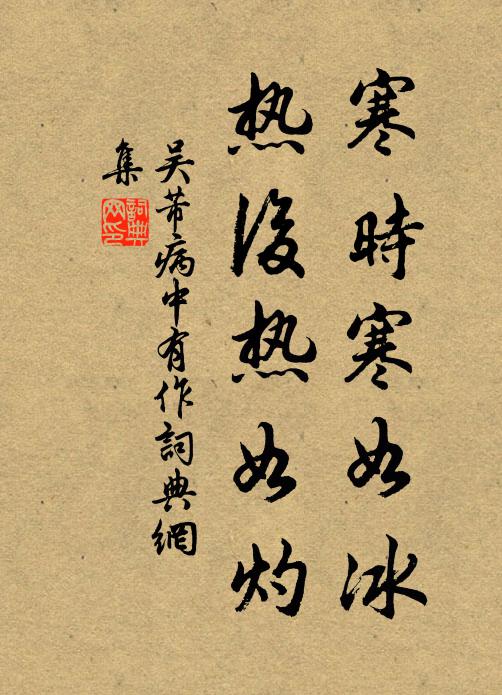 寒時寒如冰
热後热如灼
吴芾病中有作詞典網
集
詞典
网印